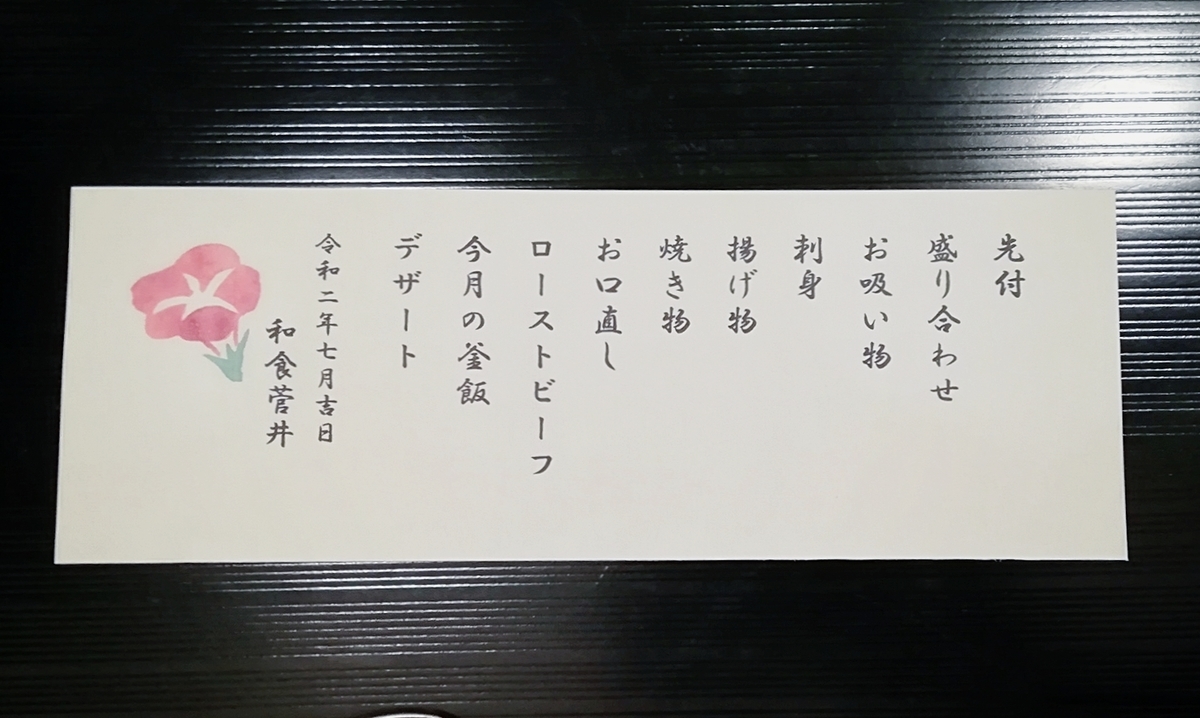 先付
盛り合わせ
お吸い物
刺身
揚げ物
焼き物
お口直し
ローストビーフ
今月の釜飯
デザート
令和二年七月吉日
和食菅井